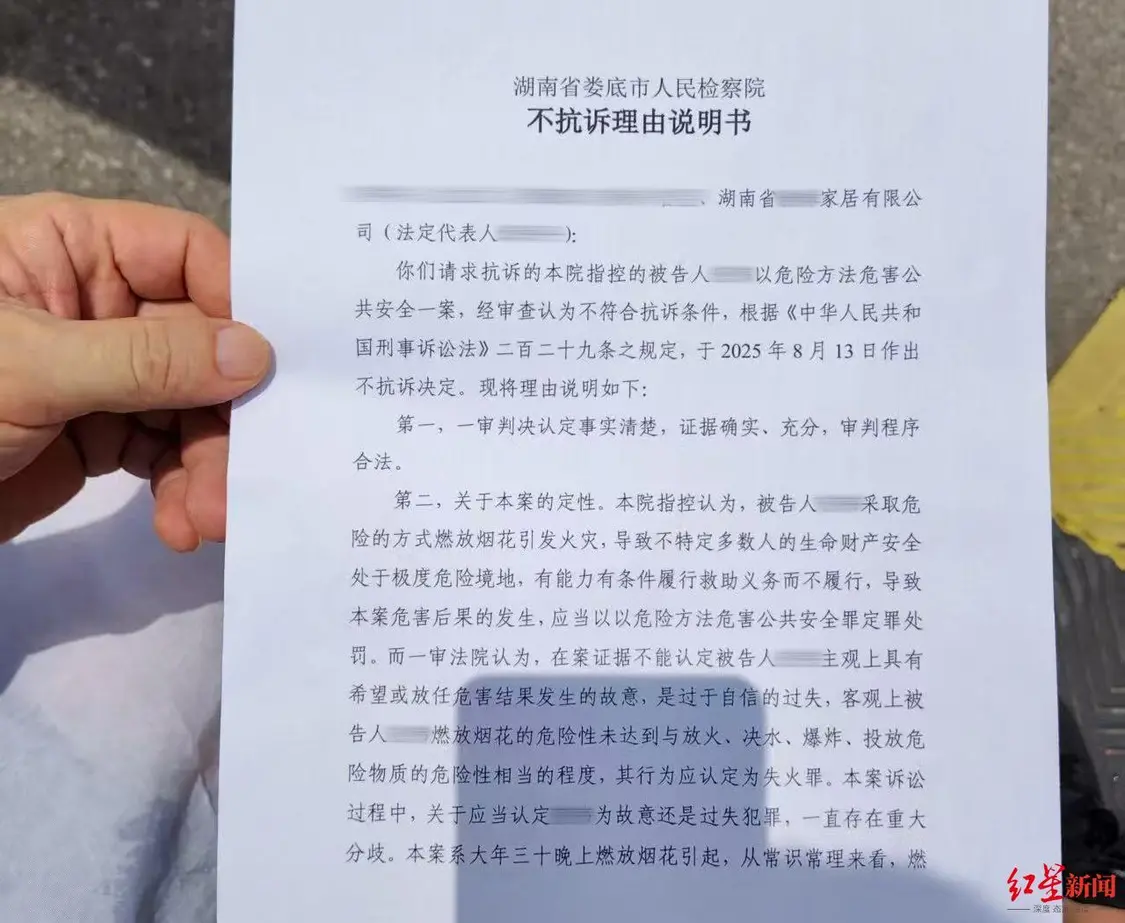 湖南省娄底市人民检察院
不抗诉理由说明书
、湖南省家居有限公
司（法定代表人）：
你们请求抗诉的本院指控的被告人以危险方法危害公
共安全一案，经审查认为不符合抗诉条件，根据《中华人民共和
国刑事诉讼法》二百二十九条之规定，于 2025 年 8 月 13 日作出
不抗诉决定。现将理由说明如下：
第一，一审判决认定事实清楚，证据确实、充分，审判程序
合法。
第二，关于本案的定性。本院指控认为，被告人采取危
险的方式燃放烟花引发火灾，导致不特定多数人的生命财产安全
处于极度危险境地，有能力有条件履行救助义务而不履行，导致
本案危害后果的发生，应当以以危险方法危害公共安全罪定罪处
罚。而一审法院认为，在案证据不能认定被告人主观上具有
希望或放任危害结果发生的故意，是过于自信的过失，客观上被
告人燃放烟花的危险性未达到与放火、决水、爆炸、投放危
险物质的危险性相当的程度，其行为应认定为失火罪。本案诉讼
过程中，关于应当认定为故意还是过失犯罪，一直存在重大
分歧。本案系大年三十晚上燃放烟花引起，从常识常理来看，燃
红星新闻
深度